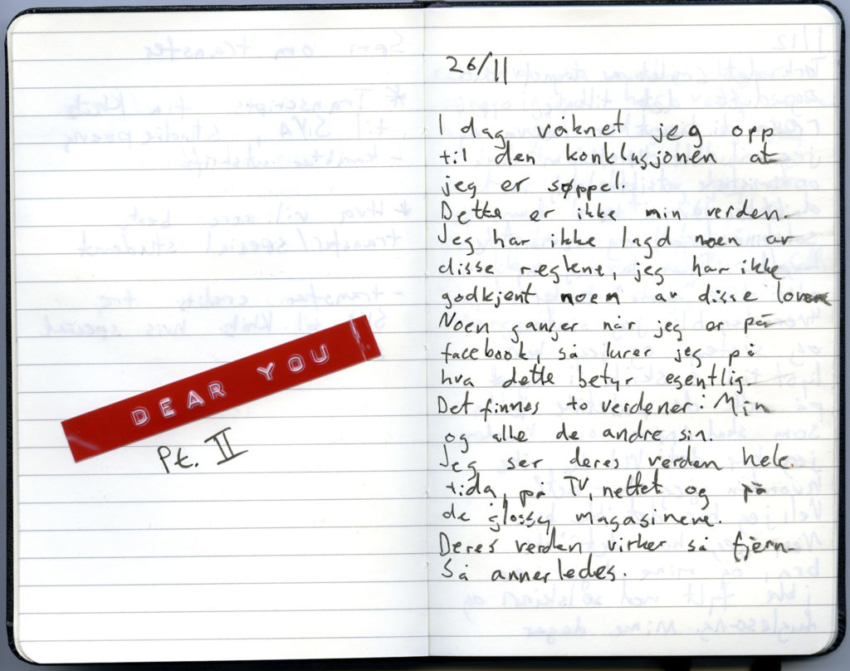 DEAR YOU
Pt. II
26/11
I dag våknet jeg opp
til den konklusjonen at
jeg er søppel.
Dette er ikke min verden.
Jeg har ikke lagd noen av
disse reglene, jeg har ikke
godkjent noen av disse lovene
Noen ganger når jeg er på
facebook, så lurer jeg på
hva dette betyr egentlig.
Det finnes to verdener: Min
og alle de andre sin.
Jeg ser deres verden hele
tida, på TV, nettet og på
de glossy magasinene.
Deres verden virker så fjern.
Så annerledes.